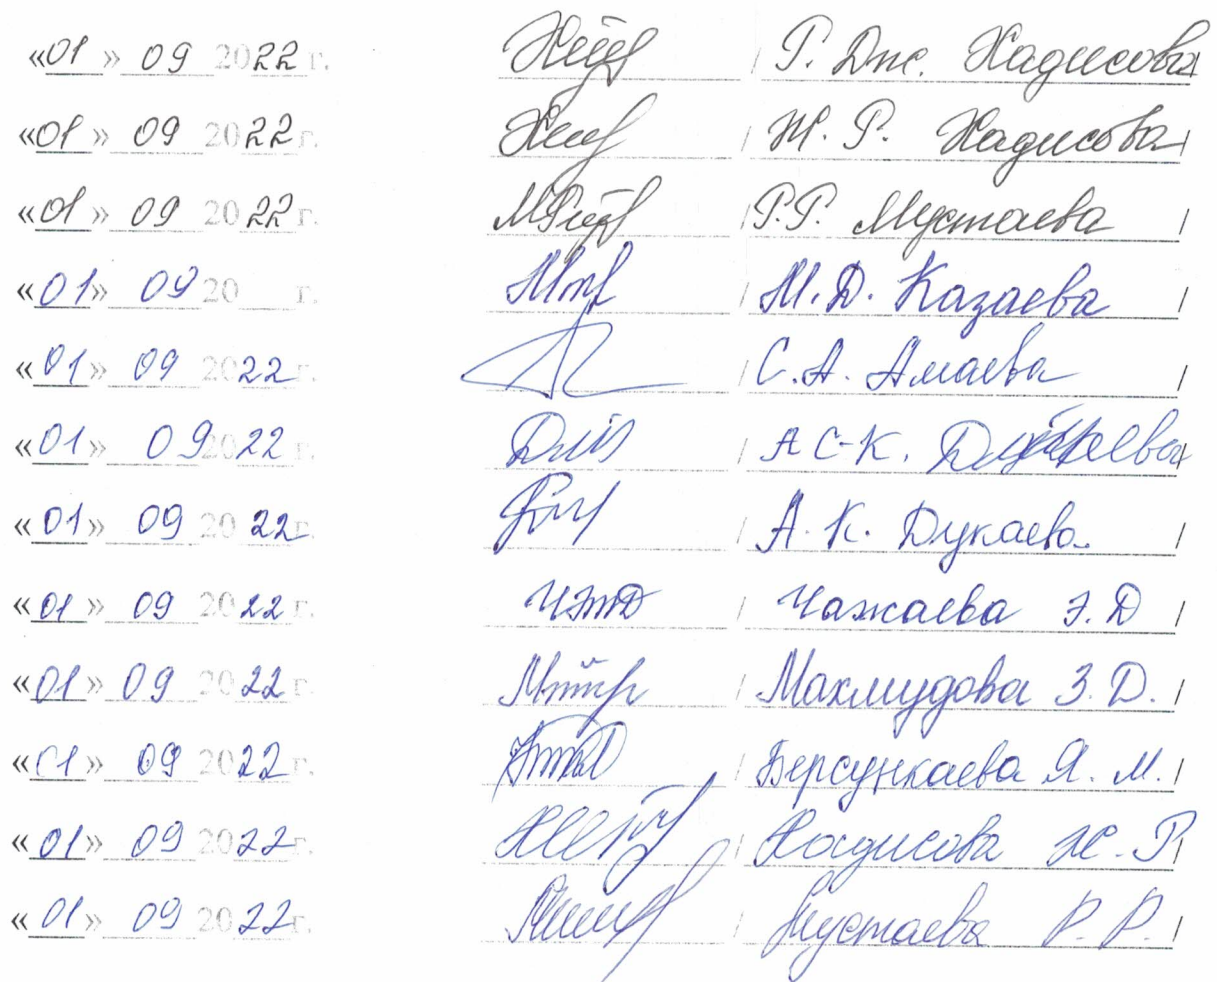 «01» 09 2022 г. / Г. Дж. Хадисова /
«01» 09 2022 г. / Ж. Р. Хадисова /
«01» 09 2022 г. / Р.Р. Мустаева /
«01» 09 20 г. / М.Д. Казаева /
«01» 09 2022 г. / С.А. Амаева /
«01» 09 2022 / А С-К. /
«01» 09 2022 г. / А. К. Дукаева /
«01» 09 2022 г. / Чажаева Э.Д /
«01» 09 2022 г. / Махмудова З.Д. /
«01» 09 2022 г. / Берсункаева Я. М. /
«01» 09 2022 г. / Хадисова Ж. Р /
«01» 09 2022 г. / Мустаева Р. Р. /